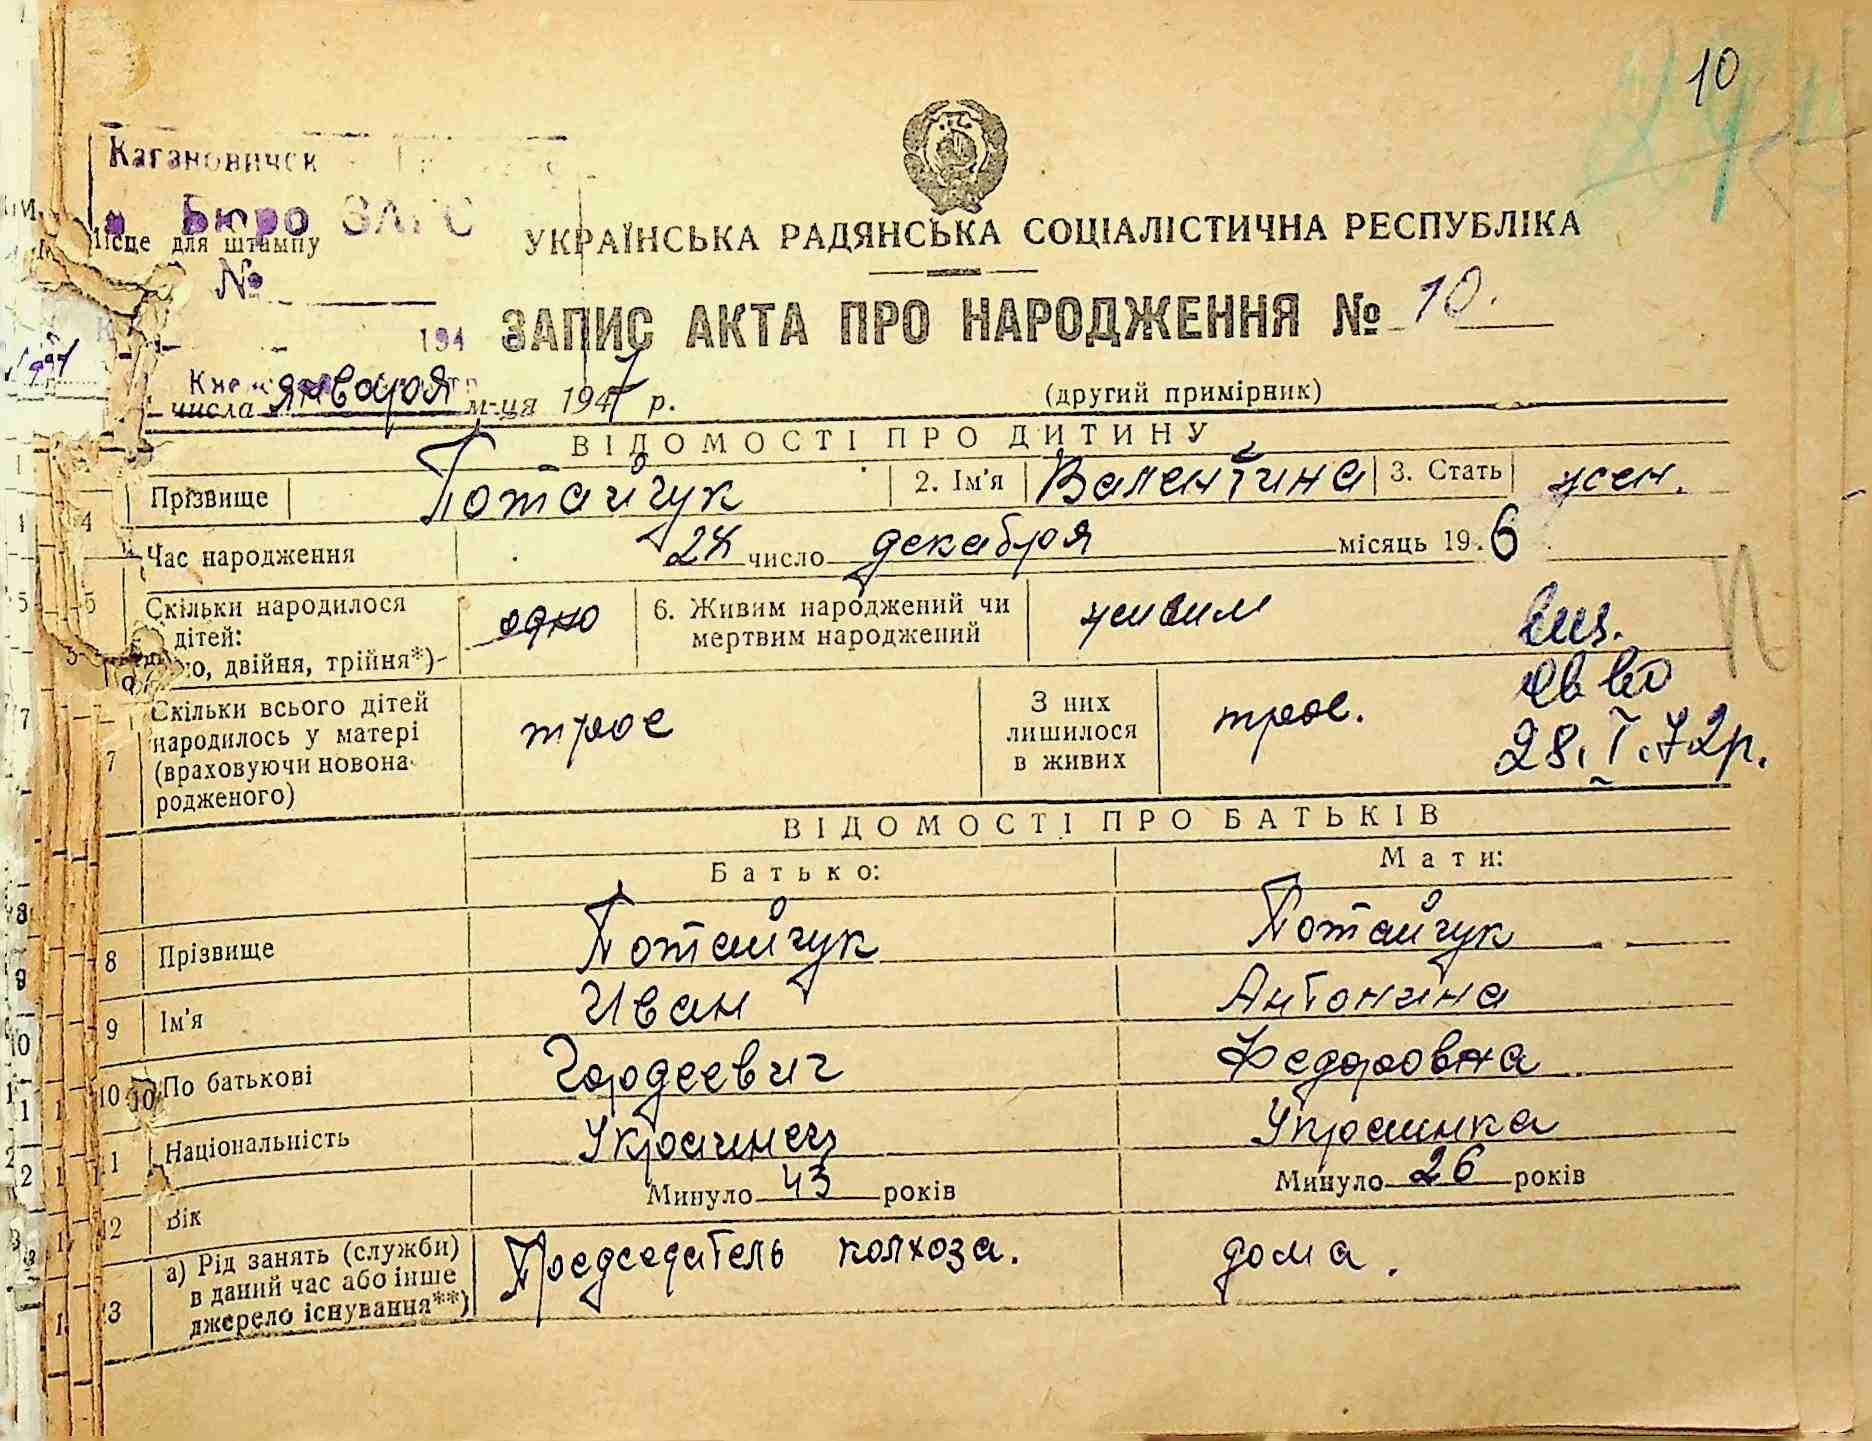 10
Кагановичск
Бюро ЗАГС
Місце для штампу
№
194
УКРАЇНСЬКА РАДЯНСЬКА СОЦІАЛІСТИЧНА РЕСПУБЛІКА
ЗАПИС АКТА ПРО НАРОДЖЕННЯ № 10.
числа января м-ця 1947 р.
(другий примірник)
ВІДОМОСТІ ПРО ДИТИНУ
Прізвище Потайчук 2. Ім'я Валентина 3. Стать жен.
4 Час народження 28 число декабря місяць 19 6
5 Скільки народилося одно 6. Живим народжений чи живим
дітей: мертвим народжений
двійня, трійня*)
вид.
св во
28.I.72р.
7 Скільки всього дітей трое З них трое.
народилось у матері лишилося
(враховуючи новона- в живих
родженого)
ВІДОМОСТІ ПРО БАТЬКІВ
Батько: Мати:
8 Прізвище Потайчук Потайчук
9 Ім'я Иван Антонина
10 По батькові Гордеевич Федоровна
1 Національність Украинец Украинка
12 Вік Минуло 43 років Минуло 26 років
3 а) Рід занять (служби) Председатель колхоза. дома.
в даний час або інше
джерело існування**)